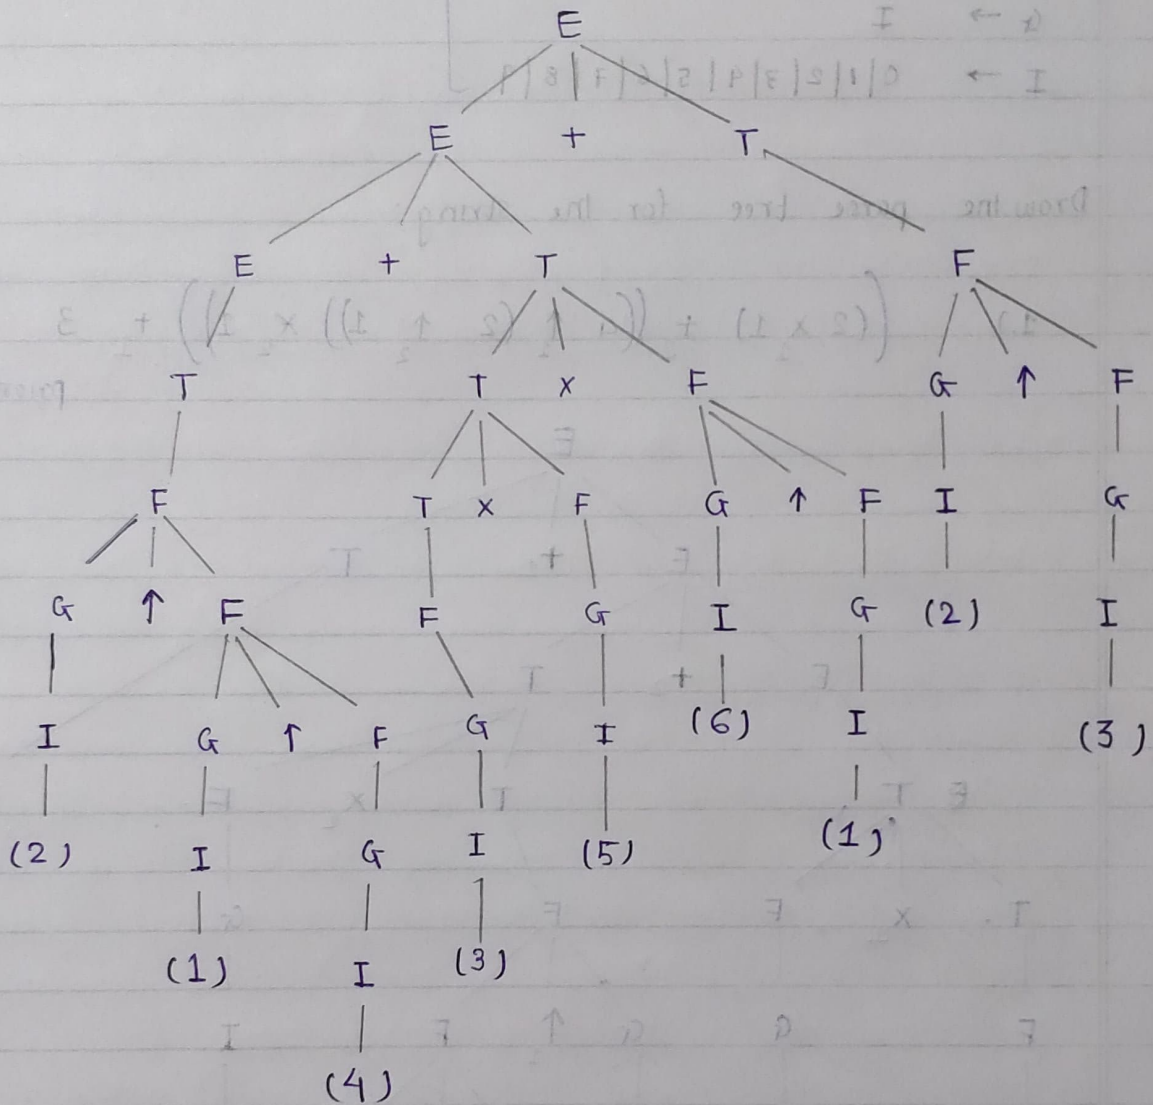 E
E + T
E + T F
T T x F G ↑ F
F T x F G ↑ F I G
G ↑ F F G I G (2) I
I G ↑ F G I (6) I (3)
(2) I G I (5) (1)
(1) I (3)
(4)